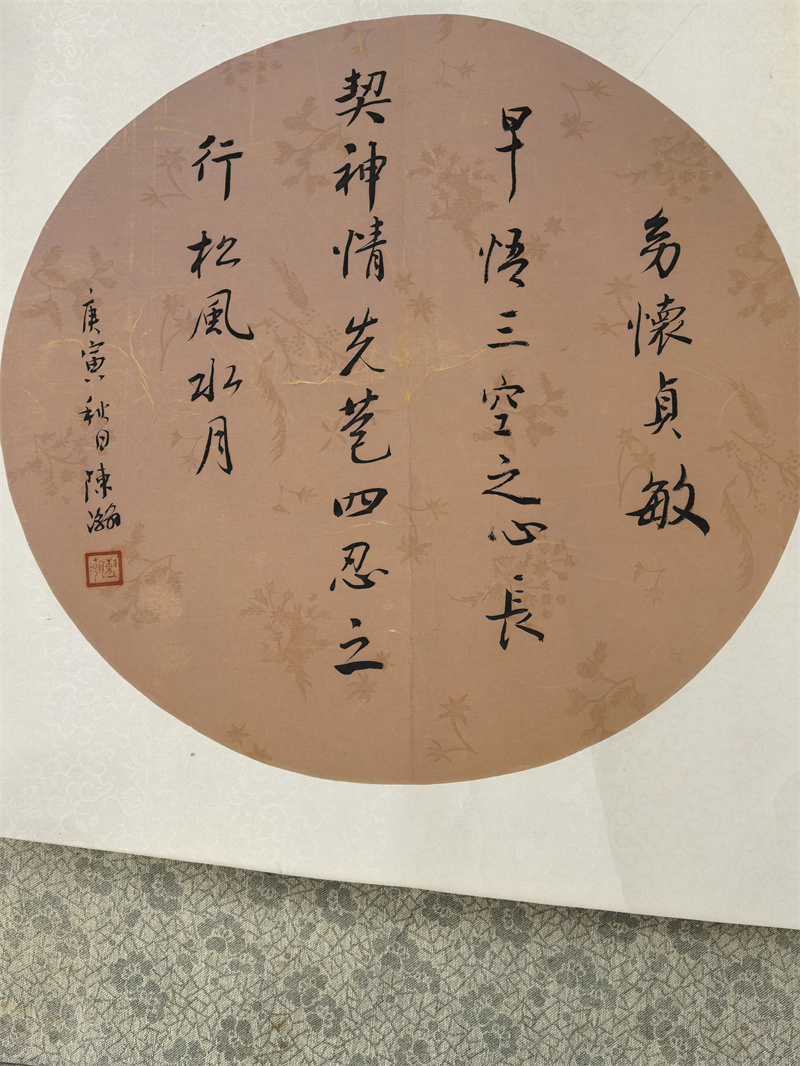 幼懷貞敏
早悟三空之心長
契神情先苞四忍之
行松風水月
庚寅秋日陳瀚